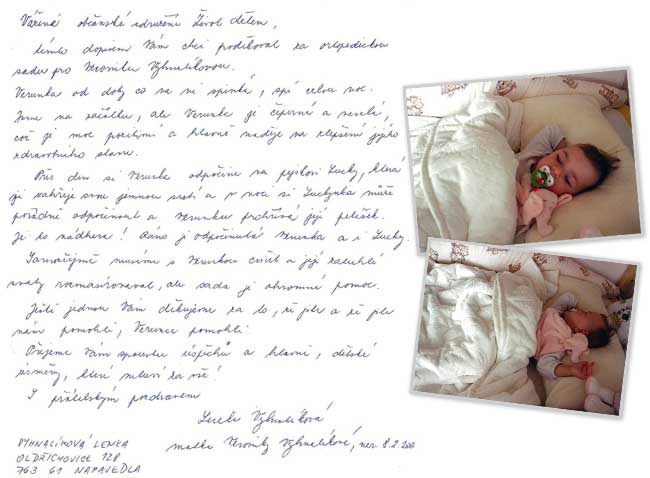 Vážené občanské sdružení Život dětem,
tímto dopisem Vám chci poděkovat za ortopedickou
sadu pro Veroniku Vyhnalíkovou.
Verunka od doby co se ní spinká, spí celou noc.
Jsme na začátku, ale Verunka je čiperná a veselá,
což je moc pozitivní a hlavně naděje na zlepšení jejího
zdravotního stavu.
Přes den si Verunka odpočine na pejskovi Lucky, která
ji zahřeje svou jemnou srstí a v noci si Luckynka může
pořádně odpočinout a Verunku prohřívá její pelíšek.
Je to nádhera! Ráno je odpočinutá Verunka a i Lucky.
Samozřejmě musíme s Verunkou cvičit a její zatuhlé
svaly rozmasírovávat, ale sada je ohromné pomoc.
Ještě jednou Vám děkujeme za to, že jste a že jste
nám pomohli, Verunce pomohli.
Přejeme Vám spoustu úspěchů a hlavně, dětské
úsměvy, které mluví za vše!
S přátelským pozdravem
Lenka Vyhnalíková
matka Veroniky Vyhnalíkové, nar. 8.2.
VYHNALÍKOVÁ LENKA
OLDŘICHOVICE 128
763 61 NAPAJEDLA